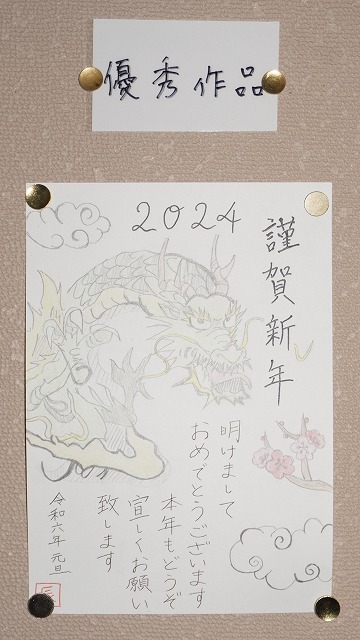 優秀作品
2024
謹賀新年
明けまして
おめでとうございます
本年もどうぞ
宜しくお願い
致します
令和六年元旦
辰